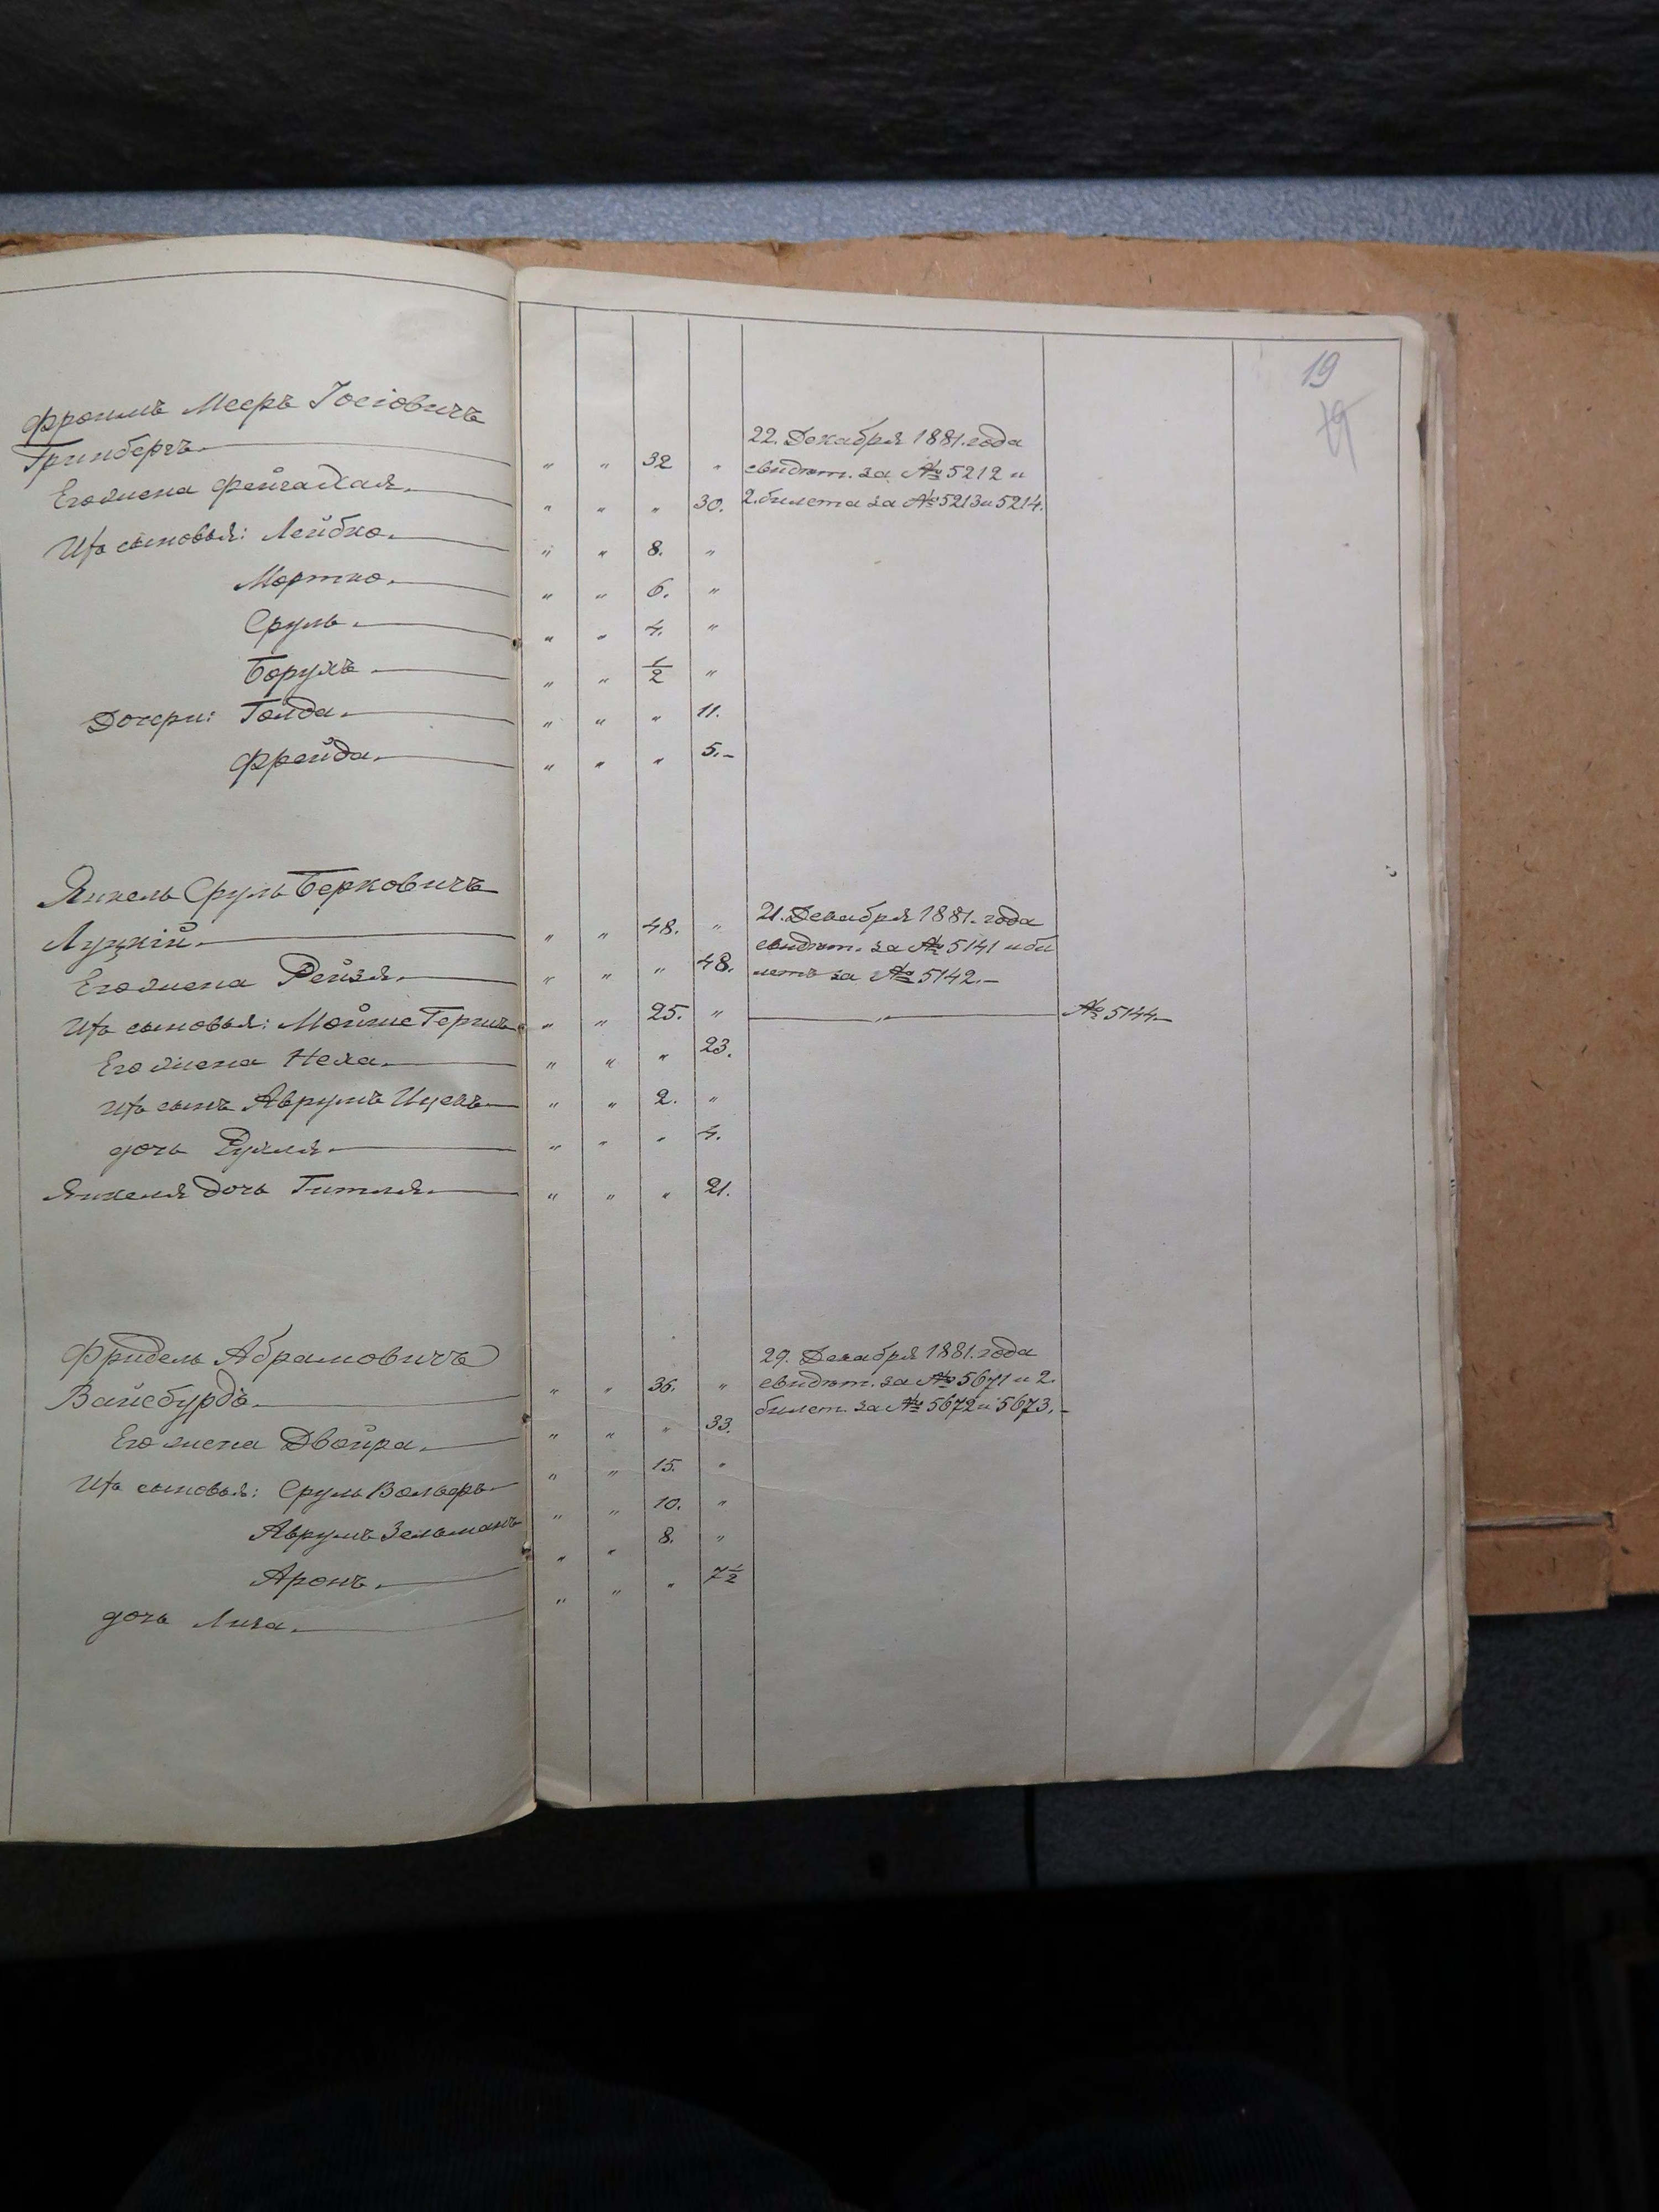 19
19
Фроимъ Мееръ Іосіовичъ
Гринбергъ. " " 32 " 22. Декабря 1881. года
свидѣт. за № 5212 и
Его жена Фейга Хая. " " " 30. 2. билета за № 5213 и 5214.
Ихъ сыновья: Лейбко. " " 8. "
Мортко. " " 6. "
Сруль. " " 4. "
Борухъ " " 1/2 "
Дочери: Голда. " " " 11.
Фрейда. " " " 5.
Янкель Сруль Берковичъ
Луцкій. " " 48. " 21. Декабря 1881. года
свидѣт. за № 5141 и би
Его жена Рейзя. " " " 48. летъ за № 5142.
Ихъ сыновья: Мойше Гершъ " " 25. " " № 5144
Его жена Неха. " " " 23.
Ихъ сынъ Аврумъ Ицекъ " " 2. "
дочь Рухля. " " " 4.
Янкеля дочь Гитля. " " " 21.
Фридель Абрамовичъ 29. Декабря 1881. года
Вайсбурдъ. " " 36. " свидѣт. за № 5671 и 2.
билет. за № 5672 и 5673.
Его жена Двойра. " " " 33.
Ихъ сыновья: Сруль Вольфъ " " 15. "
Аврумъ Зельманъ " " 10. "
Аронъ. " " 8. "
дочь " " " 7 1/2